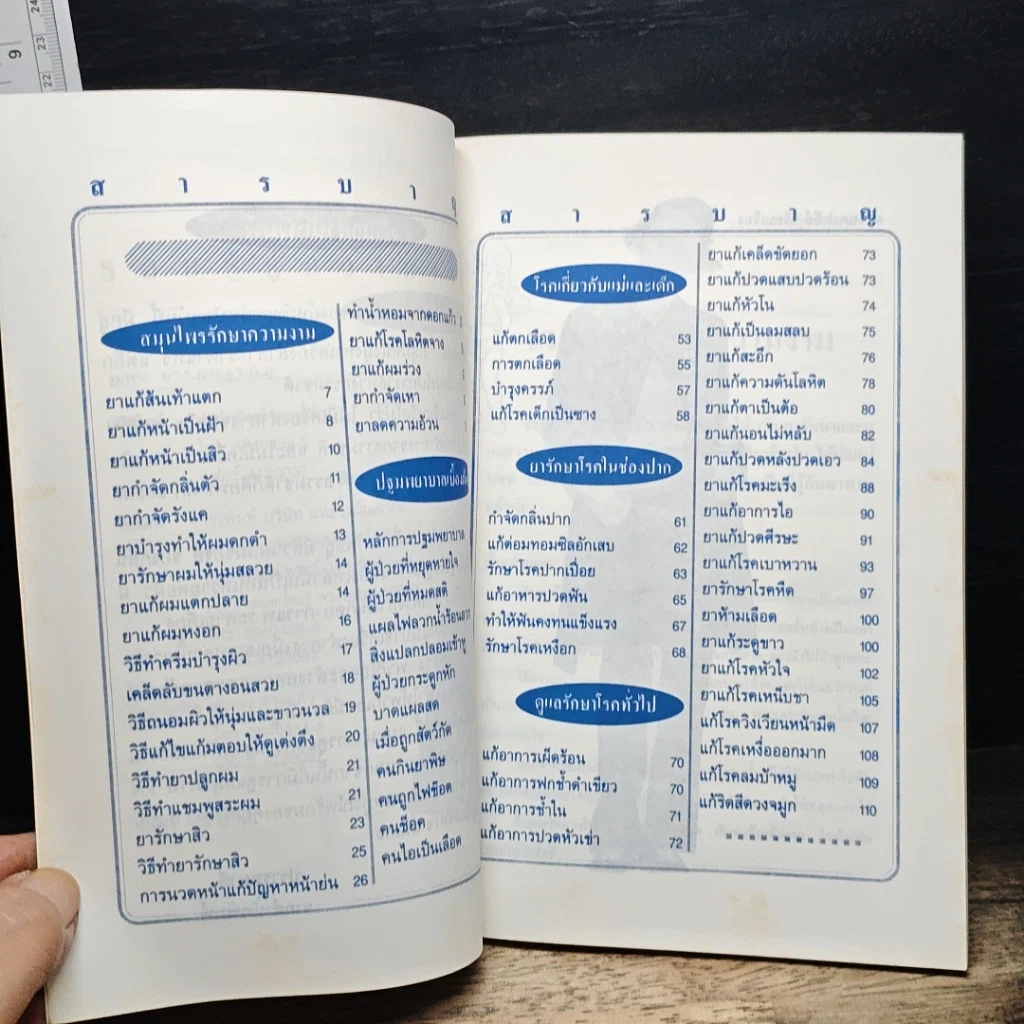 สารบาญ
สมุนไพรรักษาความงาม
ยาแก้ส้นเท้าแตก 7
ยาแก้หน้าเป็นฝ้า 8
ยาแก้หน้าเป็นสิว 10
ยากำจัดกลิ่นตัว 11
ยากำจัดรังแค 12
ยาบำรุงทำให้ผมดกดำ 13
ยารักษาผมให้นุ่มสลวย 14
ยาแก้ผมแตกปลาย 14
ยาแก้ผมหงอก 16
วิธีทำครีมบำรุงผิว 17
เคล็ดลับขนตางอนสวย 18
วิธีถนอมผิวให้นุ่มและขาวนวล 19
วิธีแก้ไขแก้มตอบให้ดูเต่งตึง 20
วิธีทำยาปลูกผม 21
วิธีทำแชมพูสระผม 21
ยารักษาสิว 23
วิธีทำยารักษาสิว 25
การนวดหน้าแก้ปัญหาหน้าย่น 26
ทำน้ำหอมจากดอกแก้ว
ยาแก้โรคโลหิตจาง
ยาแก้ผมร่วง
ยากำจัดเหา
ยาลดความอ้วน
ปฐมพยาบาลเบื้องต้น
หลักการปฐมพยาบาล
ผู้ป่วยที่หยุดหายใจ
ผู้ป่วยที่หมดสติ
แผลไฟลวกน้ำร้อนลวก
สิ่งแปลกปลอมเข้าหู
ผู้ป่วยกระดูกหัก
บาดแผลสด
เมื่อถูกสัตว์กัด
คนกินยาพิษ
คนถูกไฟช๊อต
คนช็อค
คนไอเป็นเลือด
สารบาญ
โรคเกี่ยวกับแม่และเด็ก
แก้ตกเลือด 53
การตกเลือด 55
บำรุงครรภ์ 57
แก้โรคเด็กเป็นซาง 58
ยารักษาโรคในช่องปาก
กำจัดกลิ่นปาก 61
แก้ต่อมทอมซิลอักเสบ 62
รักษาโรคปากเปื่อย 63
แก้อาหารปวดฟัน 65
ทำให้ฟันคงทนแข็งแรง 67
รักษาโรคเหงือก 68
ดูแลรักษาโรคทั่วไป
แก้อาการเผ็ดร้อน 70
แก้อาการฟกช้ำดำเขียว 70
แก้อาการช้ำใน 71
แก้อาการปวดหัวเข่า 72
ยาแก้เคล็ดขัดยอก 73
ยาแก้ปวดแสบปวดร้อน 73
ยาแก้หัวโน 74
ยาแก้เป็นลมสลบ 75
ยาแก้สะอึก 76
ยาแก้ความดันโลหิต 78
ยาแก้ตาเป็นต้อ 80
ยาแก้นอนไม่หลับ 82
ยาแก้ปวดหลังปวดเอว 84
ยาแก้โรคมะเร็ง 88
ยาแก้อาการไอ 90
ยาแก้ปวดศีรษะ 91
ยาแก้โรคเบาหวาน 93
ยารักษาโรคหืด 97
ยาห้ามเลือด 100
ยาแก้ระดูขาว 100
ยาแก้โรคหัวใจ 102
ยาแก้โรคเหน็บชา 105
แก้โรควิงเวียนหน้ามืด 107
แก้โรคเหงื่อออกมาก 108
แก้โรคลมบ้าหมู 109
แก้ริดสีดวงจมูก 110